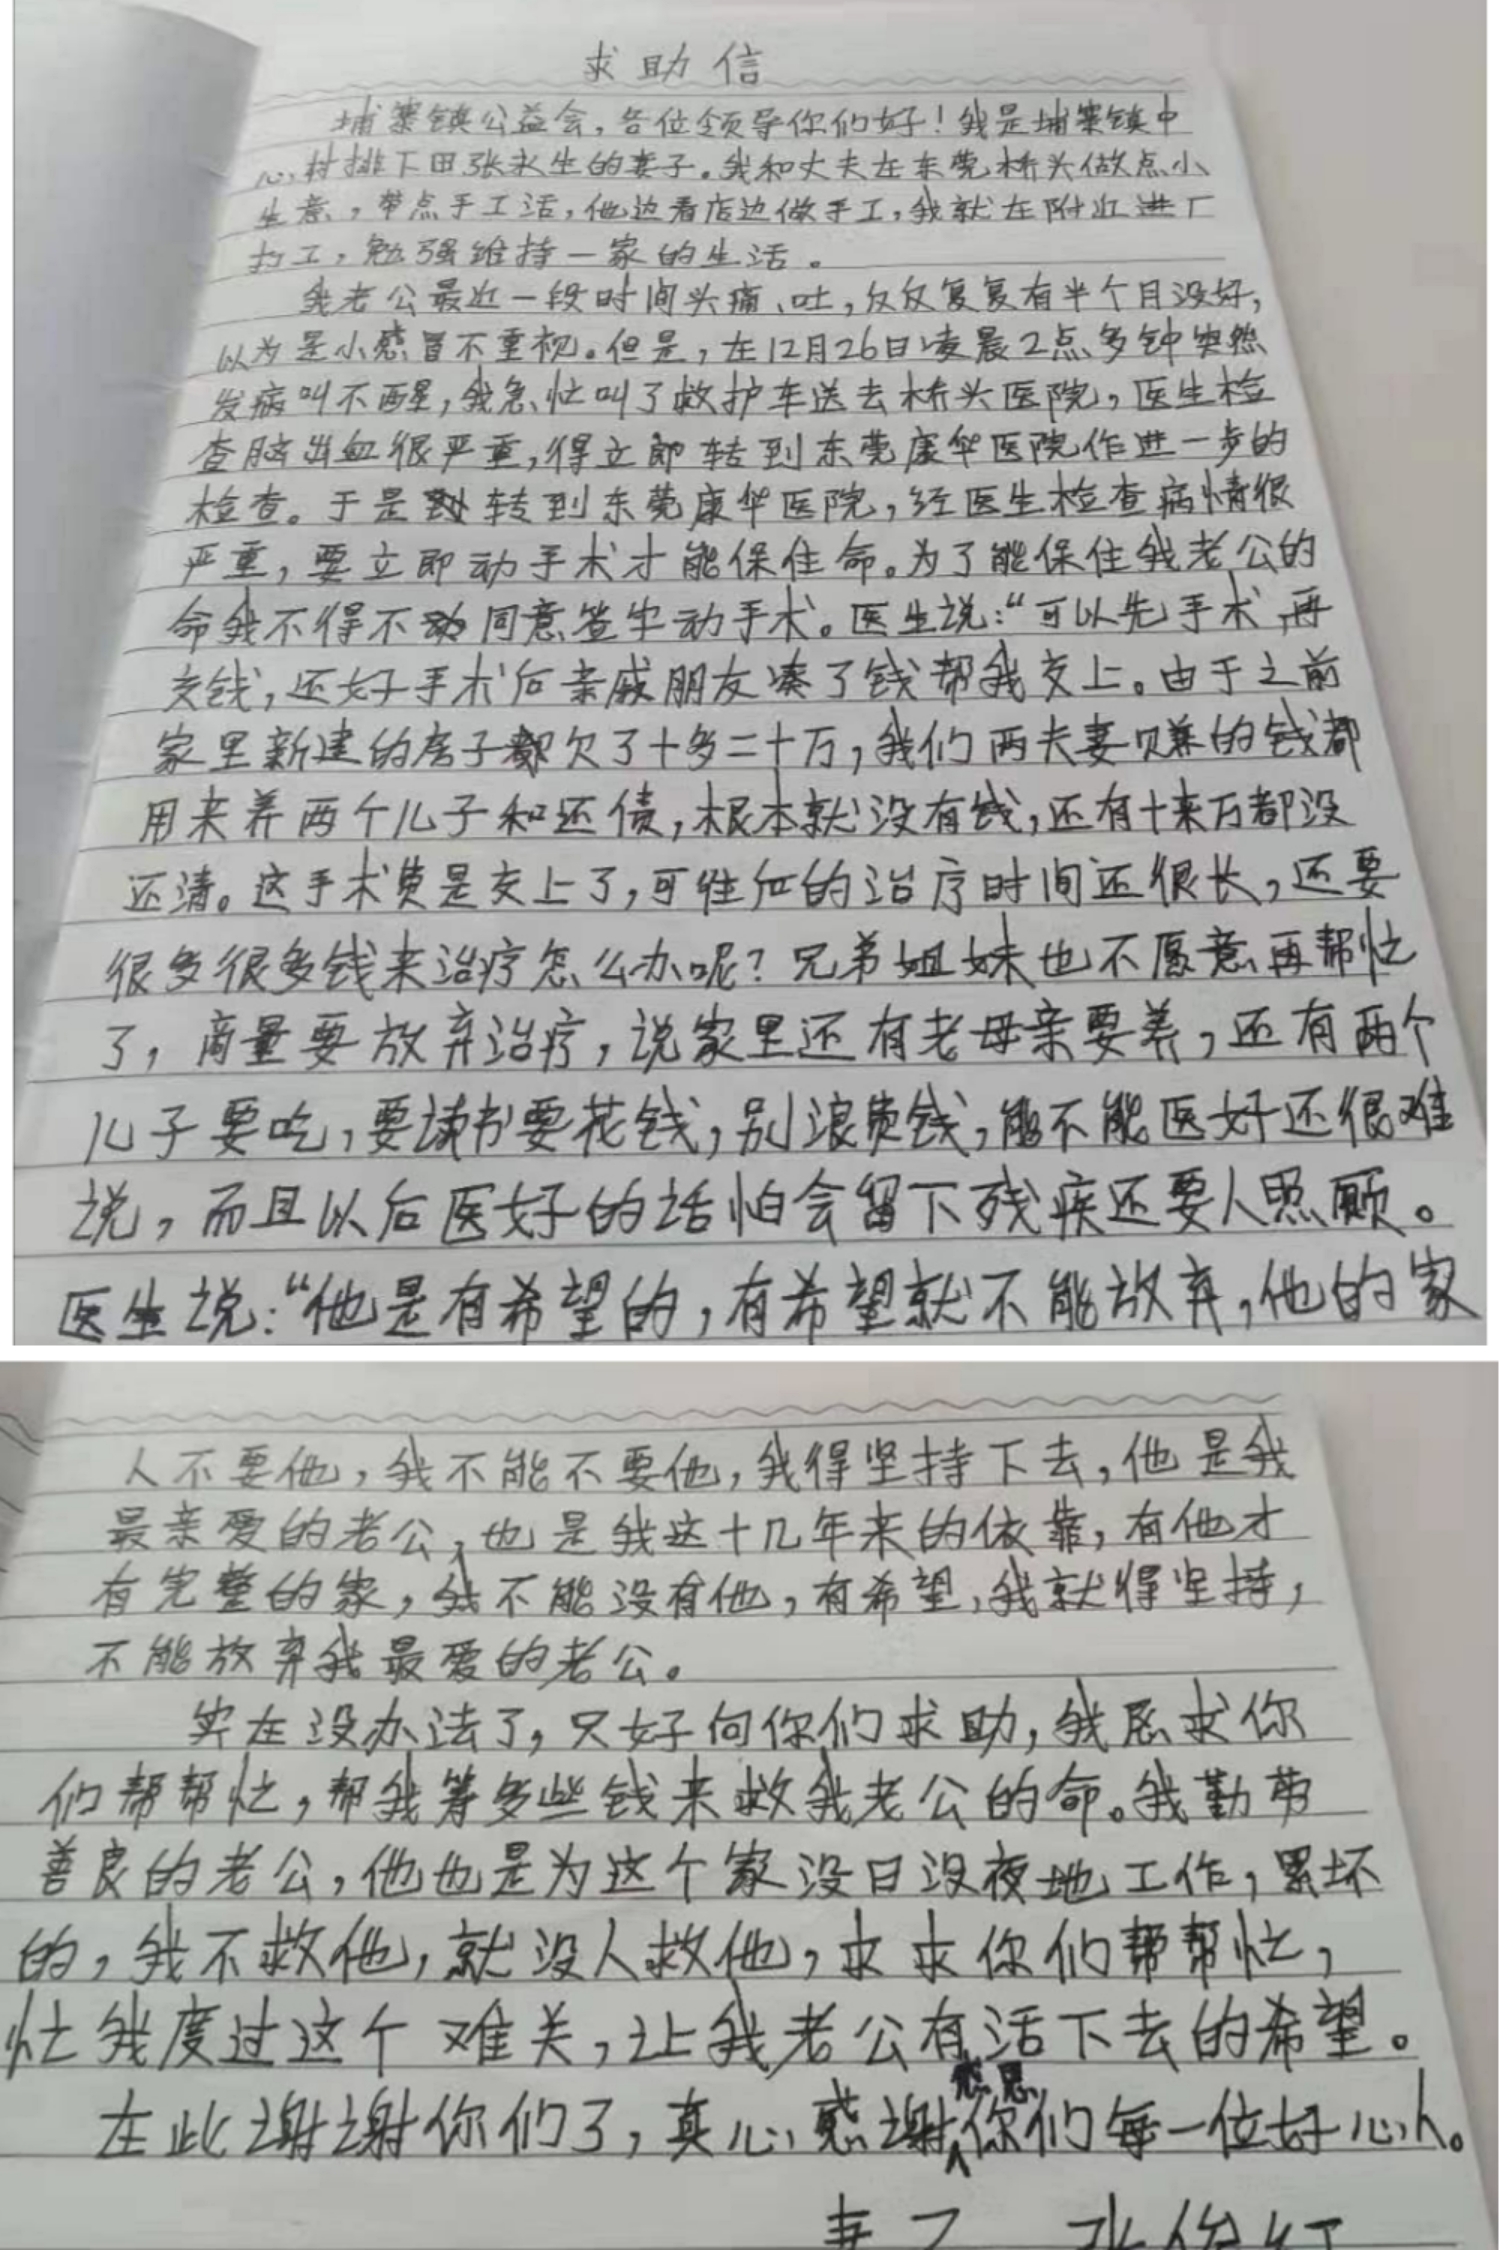 求助信
埔寨镇公益会，各位领导你们好！我是埔寨镇中
心村排下田张永生的妻子。我和丈夫在东莞桥头做点小
生意，带点手工活，他边看店边做手工，我就在附近进厂
打工，勉强维持一家的生活。
我老公最近一段时间头痛、吐，反反复复有半个月没好，
以为是小感冒不重视。但是，在12月26日凌晨2点多钟突然
发病叫不醒，我急忙叫了救护车送去桥头医院，医生检
查脑出血很严重，得立即转到东莞康华医院作进一步的
检查。于是转到东莞康华医院，经医生检查病情很
严重，要立即动手术才能保住命。为了能保住我老公的
命我不得不同意签字动手术。医生说：“可以先手术，再
交钱，还好手术后亲戚朋友凑了钱帮我交上。由于之前
家里新建的房子都欠了十多二十万，我们两夫妻赚的钱都
用来养两个儿子和还债，根本就没有钱，还有十来万都没
还清。这手术费是交上了，可往后的治疗时间还很长，还要
很多很多钱来治疗怎么办呢？兄弟姐妹也不愿意再帮忙
了，商量要放弃治疗，说家里还有老母亲要养，还有两个
儿子要吃，要读书要花钱，别浪费钱，能不能医好还很难
说，而且以后医好的话怕会留下残疾还要人照顾。
医生说：“他是有希望的，有希望就不能放弃，他的家
人不要他，我不能不要他，我得坚持下去，他是我
最亲爱的老公，也是我这十几年来的依靠，有他才
有完整的家，我不能没有他，有希望，我就得坚持，
不能放弃我最爱的老公。
实在没办法了，只好向你们求助，我恳求你
们帮帮忙，帮我筹多些钱来救我老公的命。我勤劳
善良的老公，他也是为这个家没日没夜地工作，累坏
的，我不救他，就没人救他，求求你们帮帮忙，
忙我度过这个难关，让我老公有活下去的希望。
在此谢谢你们了，真心感谢感恩你们每一位好心人。
妻子